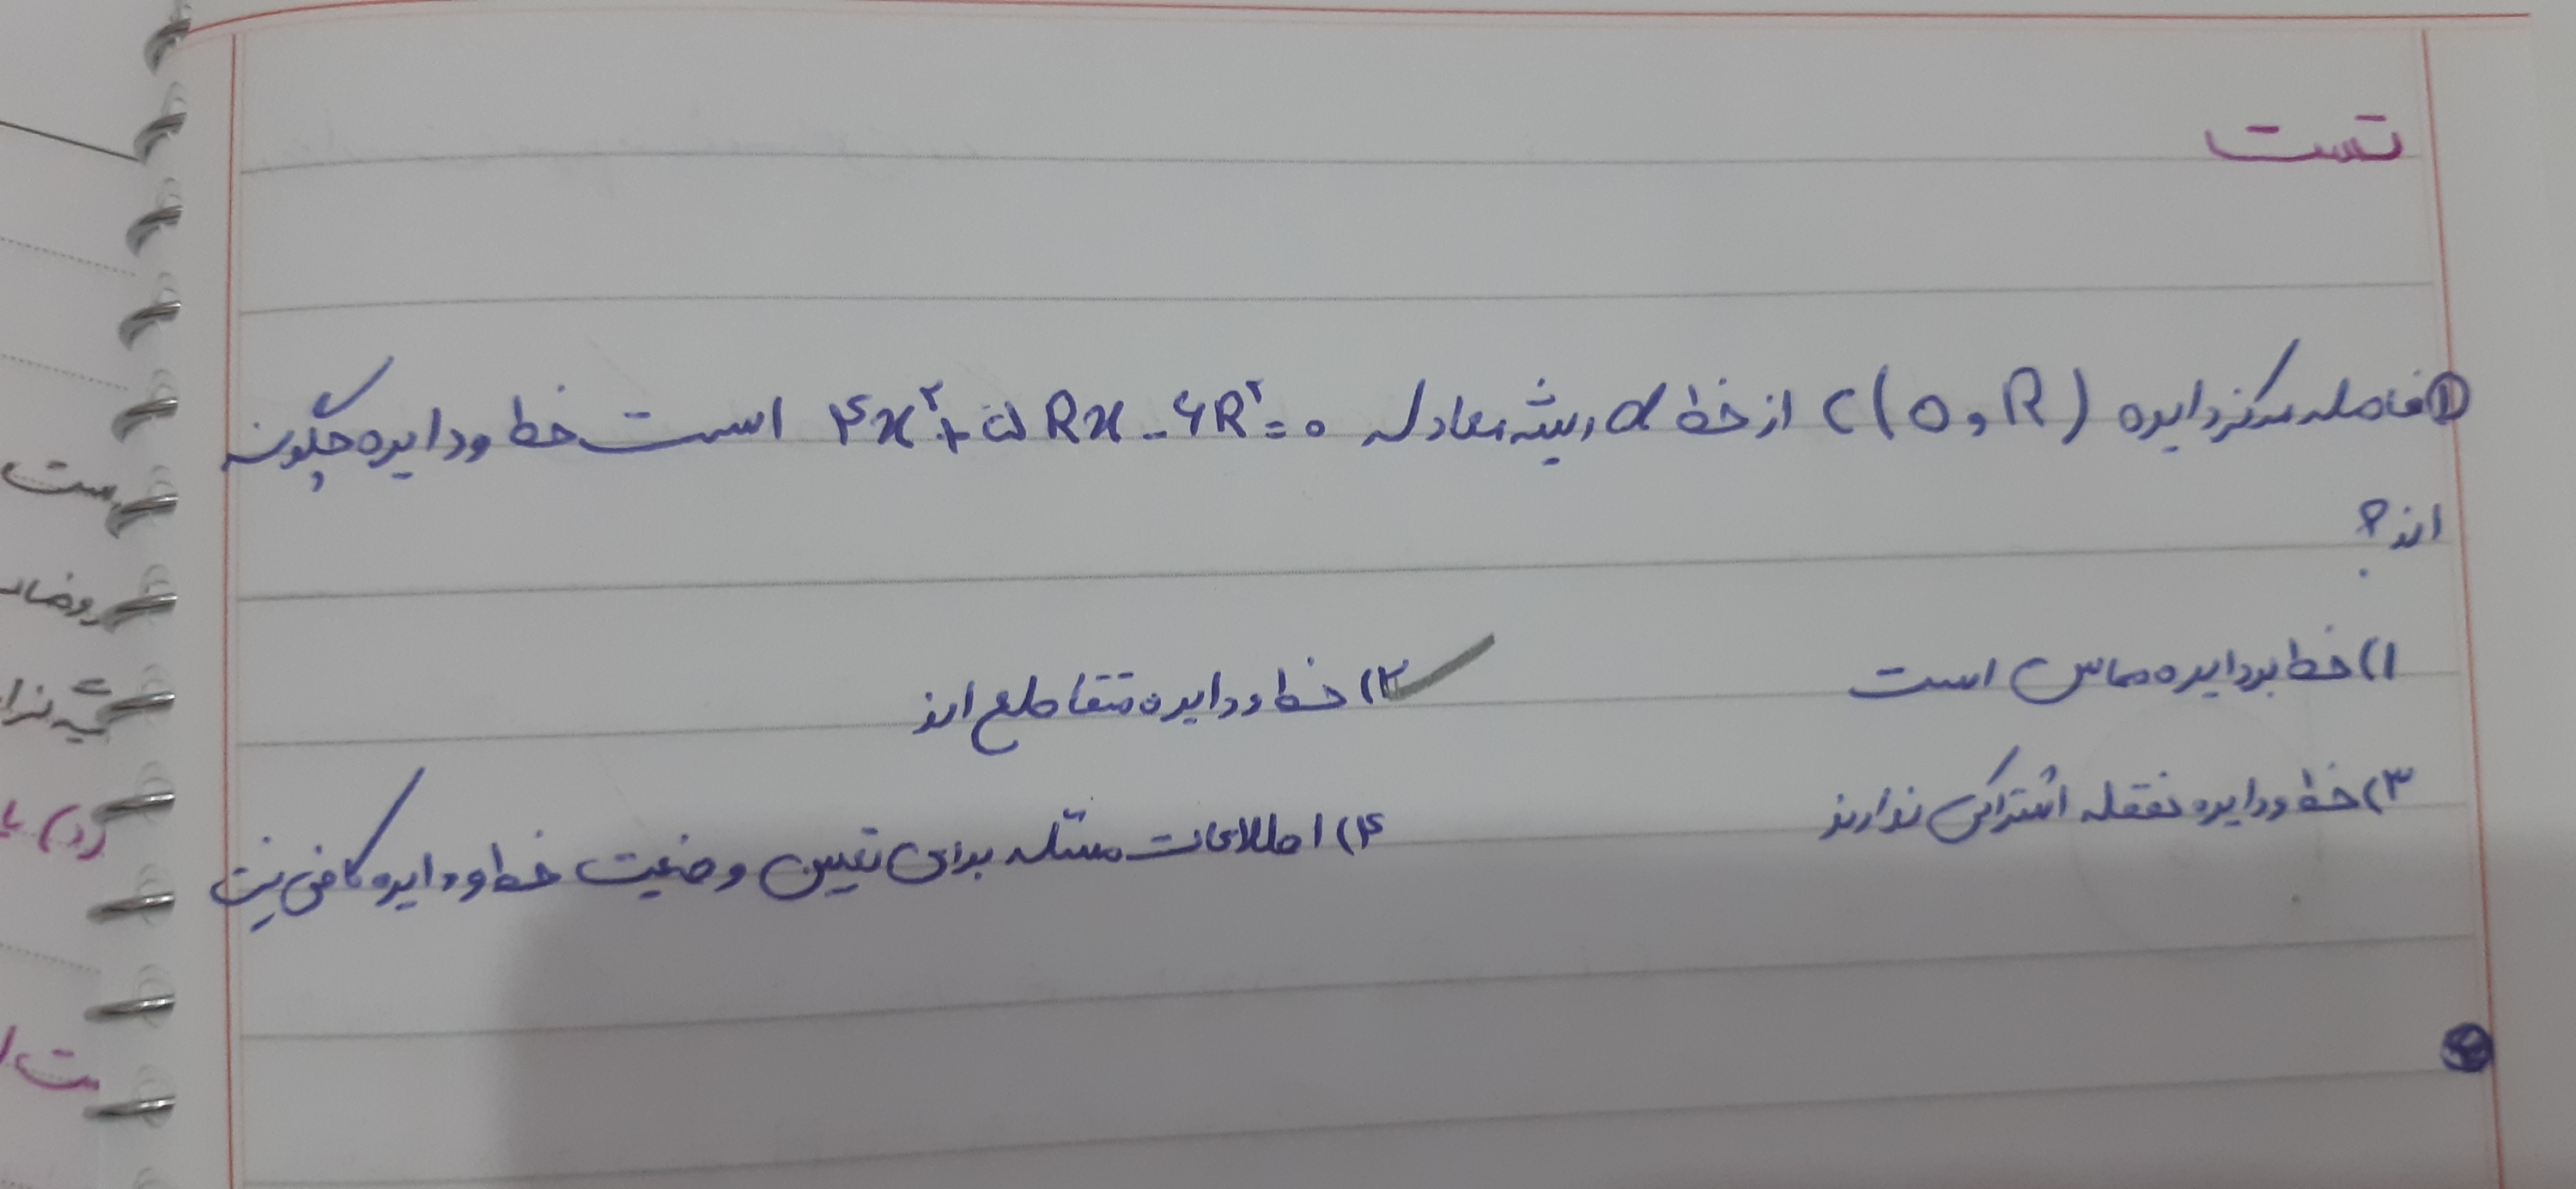 تست
① فاصله مرکز دایره C(O,R) از خط d ریشه معادله ۴x²+۵Rx-۶R²=۰ است خط و دایره چگونه
اند؟
۱) خط بر دایره مماس است
۲) خط و دایره متقاطع اند
۳) خط و دایره نقطه اشتراکی ندارند
۴) اطلاعات مسئله برای تعیین وضعیت خط و دایره کافی نیست
ست